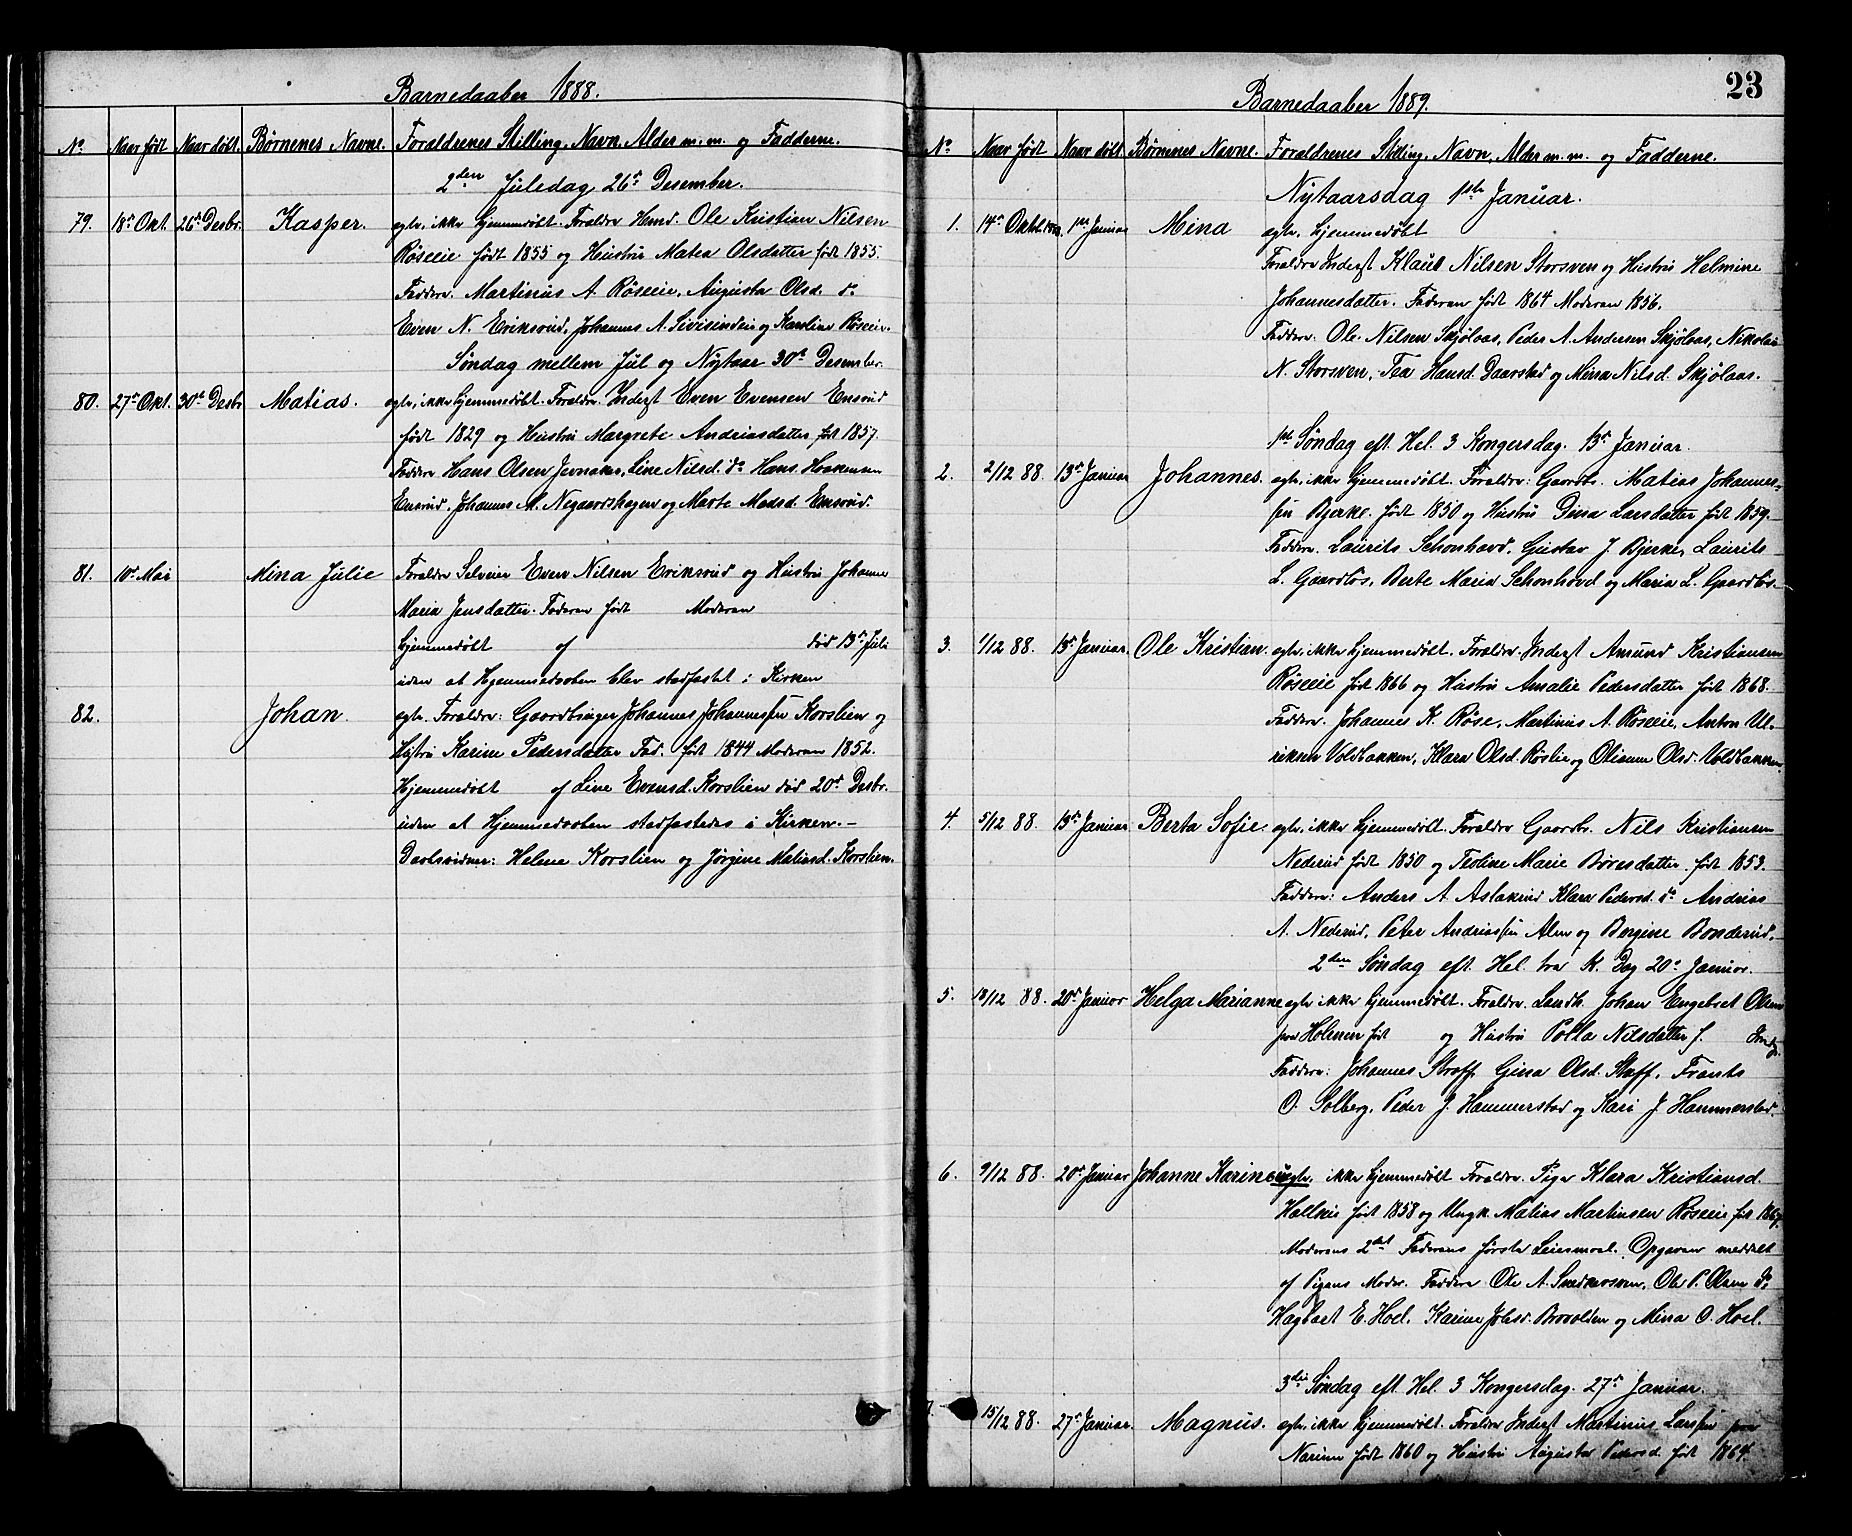 Barnedaaber 1888.
No. Naar født Naar døbt. Børnenes Navne. Forældrenes Stilling, Navn, Alder m. m. og Fadderne.
2den Juledag 26de Desember.
79. 18de Okt. 26de Desbr. Kasper. egte, ikke hjemmedøbt. Forældre Hmd. Ole Kristian Nilsen
Røseeie født 1855 og Hustru Matea Olsdatter født 1855.
Faddere. Martinus A. Røseeie, Augusta Olsd. do
Even N. Eriksrud, Johannes A. og Karoline Røseeie.
Søndag mellem Jul og Nytaar 30te Desember.
80. 27de Okt. 30te Desbr Matias. egte, ikke hjemmedøbt. Forældre. Inderst Even Evensen Ensrud
født 1829 og Hustru Margrete Andriasdatter født 1857.
Faddere Hans Olsen Jevnaker, Line Nilsd. do Hans Haakensen
Ensrud, Johannes M. Negaardshagen og Marte Madsd. Ensrud.
81. 10de Mai Mina Julie Forældre Selveier Even Nilsen Eriksrud og Hustru Johanne
Maria Jensdatter. Faderen født Moderen
hjemmedøbt af død 13de Juli
uden at Hjemmedaaben blev stadfæstet i Kirken
82. Johan. egte. Forældre: Gaardbruger Johannes Johannessen Korslien og
Hustru Karine Pedersdatter Fad. født 1844 Moderen 1852.
Hjemmedøbt af Line Evensd. Korslien død 20de Desbr.
uden at Hjemmedaaben stadfæstedes i Kirken.—
Daabsvidner: Helene Korslien og Jørgine Matiasd. Korslien.
23
Barnedaaber 1889.
No. Naar født Naar døbt. Børnenes Navne. Forældrenes Stilling, Navn, Alder m. m. og Fadderne.
Nytaarsdag 1ste Januar.
1. 14de Oktbr. 1888. 1ste Januar Mina egte, hjemmedøbt
Forældre Inderst Klaus Nilsen Storsven og Hustru Helmine
Johannesdatter. Faderen født 1864 Moderen 1856.
Faddere: Ole Nilsen Skjølaas, Peder A. Andersen Skjølaas, Nikolai
N. Storsven, Tea Hansd. Daarstad og Mina Nilsd. Skjølaas.
1ste Søndag eft. Hel. 3 Kongersdag. 13de Januar.
2. 2/12 88. 13de Januar Johannes. egte, ikke hjemmedøbt. Forældre: Gaardbr. Matias Johannes-
sen Bjerke. født 1850 og Hustru Dina Larsdatter født 1859.
Faddere. Laurits Schonhovd, Gustav J. Bjerke, Laurits
L. Gaardløs, Berte Maria Schonhovd og Maria L. Gaardløs.
3. 1/12 88. 13de Januar. Ole Kristian. egte, ikke hjemmedøbt. Forældre. Inderst Amund Kristiansen
Røseeie født 1866 og Hustru Amalie Pedersdatter født 1868.
Faddere. Johannes K. Røse, Martinus A. Røseeie, Anton Ul-
riksen Voldbakken, Klara Olsd. Røslie og Oliane Olsd. Voldbakken.
4. 5/12 88. 13de Januar Berta Sofie. egte, ikke hjemmedøbt. Forældre Gaardbr. Nils Kristiansen
Nederud født 1850 og Teoline Marie Børresdatter født 1853.
Faddere: Anders A. Aslakrud Klara Pedersd. do Andrias
A. Nederud, Peter Andriassen Alm og Bergine Bonderud.
2den Søndag eft. Hel. tre K. Dag 20de Januar.
5. 18/12 88. 20de Januar Helga Marianne egte ikke hjemmedøbt. Forældre. Landh. Johan Engebret Olsen
paa Holmen født og Hustru Polla Nilsdatter f.
Faddere: Johannes Straff Gina Olsd. Staff, Frants
O. Solberg, Peder J. Hammerstad og Kari J. Hammerstad.
6. 9/12 88. 20de Januar Johanne Karine uegte, ikke hjemmedøbt Forældre. Pige Klara Kristiansd.
født 1858 og Ungk. Matias Martinsen Røseeie født 1867.
Moderens 2det Faderens første Leiermaal. Opgaven meddelt
af Pigens Moder. Faddere Ole A. Snekkersveen, Ole P. Olsen do
Hagbart E. Hoel, Karine Johsd. Brovolden og Mina O. Hoel.
3die Søndag eft. Hel. 3 Kongersdag. 27de Januar.
7. 15/12 88. 27de Januar. Magnus. egte, ikke hjemmedøbt. Forældre Inderst Martinus Larssen paa
Narum født 1860 og Hustru Augusta Pedersd. født 1864.